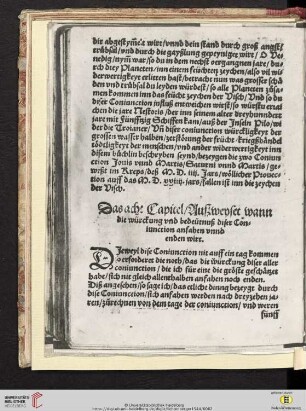 dir abgestym̃et wirt/ vnnd dein stand durch groß angst/
trübsal/ vnd durch die gayslung gepeyniget wirt/ O Ve
nedig/ nym̃ war/ so du in dem nechst vergangnen jare/ das
durch drey Planeten/ inn einem feüchten zeychen/ also vil wi
derwertigkeyt erlitten hast/ betracht nun was grosser schä
den vnd trübsal du leyden würdest/ so alle Planeten zůsa
men kommen inn das feücht zeychen der Visch/ Vnd so du
diser Coniunction influß entweichen wirst/ so würstu errai
chen die jare Nestoris/ der inn seinem alter dreyhundert
jare mit Fünfftzig Schiffen kam/ auß der Inseln Pilo/ wi
der die Troianer/ Vn̄ diser coniunction würcklicheyt der
grossen wasser halben/ zerstörung der frücht/ kriegßhändel
tödtligkeyt der menschen/ vnd anderer widerwertigkeyt inn
disem büchlin beschryben seynd/ bezeygen die zwo Coniun
ction Jouis vnnd Martis/ Saturni vnnd Martis/ ge-
weßt im Kreps/ deß M.D. iiij. Jars/ wölicher Profec-
tion auff das M.D. xxiiij. jars/ fallen ist inn die zeychen
der Visch.
Das acht Capitel/ Außweyset wann
die würckung vnd bedeütnuß diser Con
iunction anfahen vnnd
enden wirt.
Dieweyl dise Coniunction nit auff ein tag kommen
so erfordert die noth/ das die würckung diser aller
coniunction/ die ich für eine die größte geschätzet
habe/ sich nit gleich allenthalben anfahen noch enden.
Diß angesehen/ so sage ich/ das etlich dinng bezeygt durch
dise Coniunction/ sich anfahen werden nach dreyzehen ja
ren/ zůrechnen von dem tage der coniunction/ vnd weren
fünff
UNIVERSITÄTS-
BIBLIOTHEK
HEIDELBERG
© Universitätsbibliothek Heidelberg